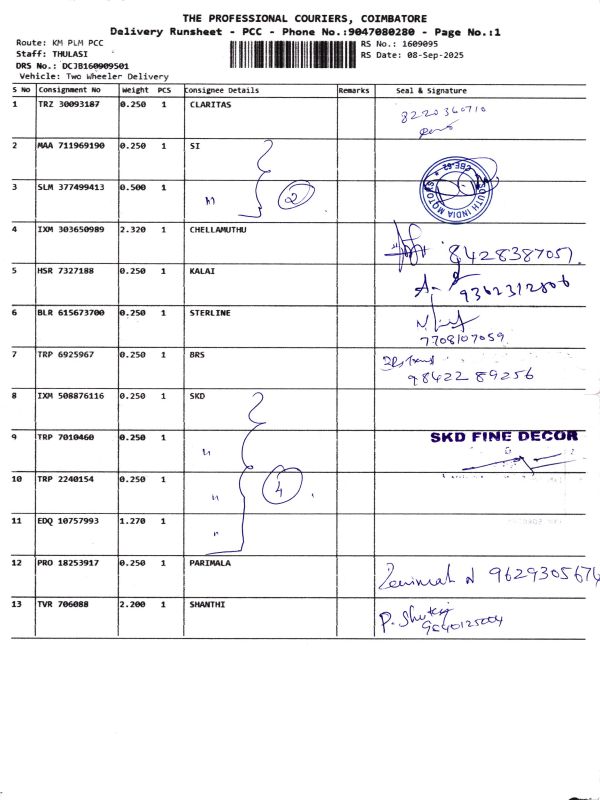 THE PROFESSIONAL COURIERS, COIMBATORE
Delivery Runsheet - PCC - Phone No.:9047080280 - Page No.:1
Route: KM PLM PCC
Staff: THULASI
DRS No.: DCJB160909501
Vehicle: Two Wheeler Delivery
RS No.: 1609095
RS Date: 08-Sep-2025
S No Consignment No Weight PCS Consignee Details Remarks Seal & Signature
1 TRZ 30093187 0.250 1 CLARITAS 8220360710
2 MAA 711969190 0.250 1 SI
3 SLM 377499413 0.500 1 " 2 SOUTH INDIA MOTORS
4 IXM 303650989 2.320 1 CHELLAMUTHU 8428387051
5 HSR 7327188 0.250 1 KALAI 9362312806
6 BLR 615673700 0.250 1 STERLINE
7708107059
7 TRP 6925967 0.250 1 BRS
98422 89256
8 IXM 508876116 0.250 1 SKD
9 TRP 7010460 0.250 1 " SKD FINE DECOR
10 TRP 2240154 0.250 1 " 4
11 EDQ 10757993 1.270 1 "
12 PRO 18253917 0.250 1 PARIMALA 9629305674
13 TVR 706088 2.200 1 SHANTHI